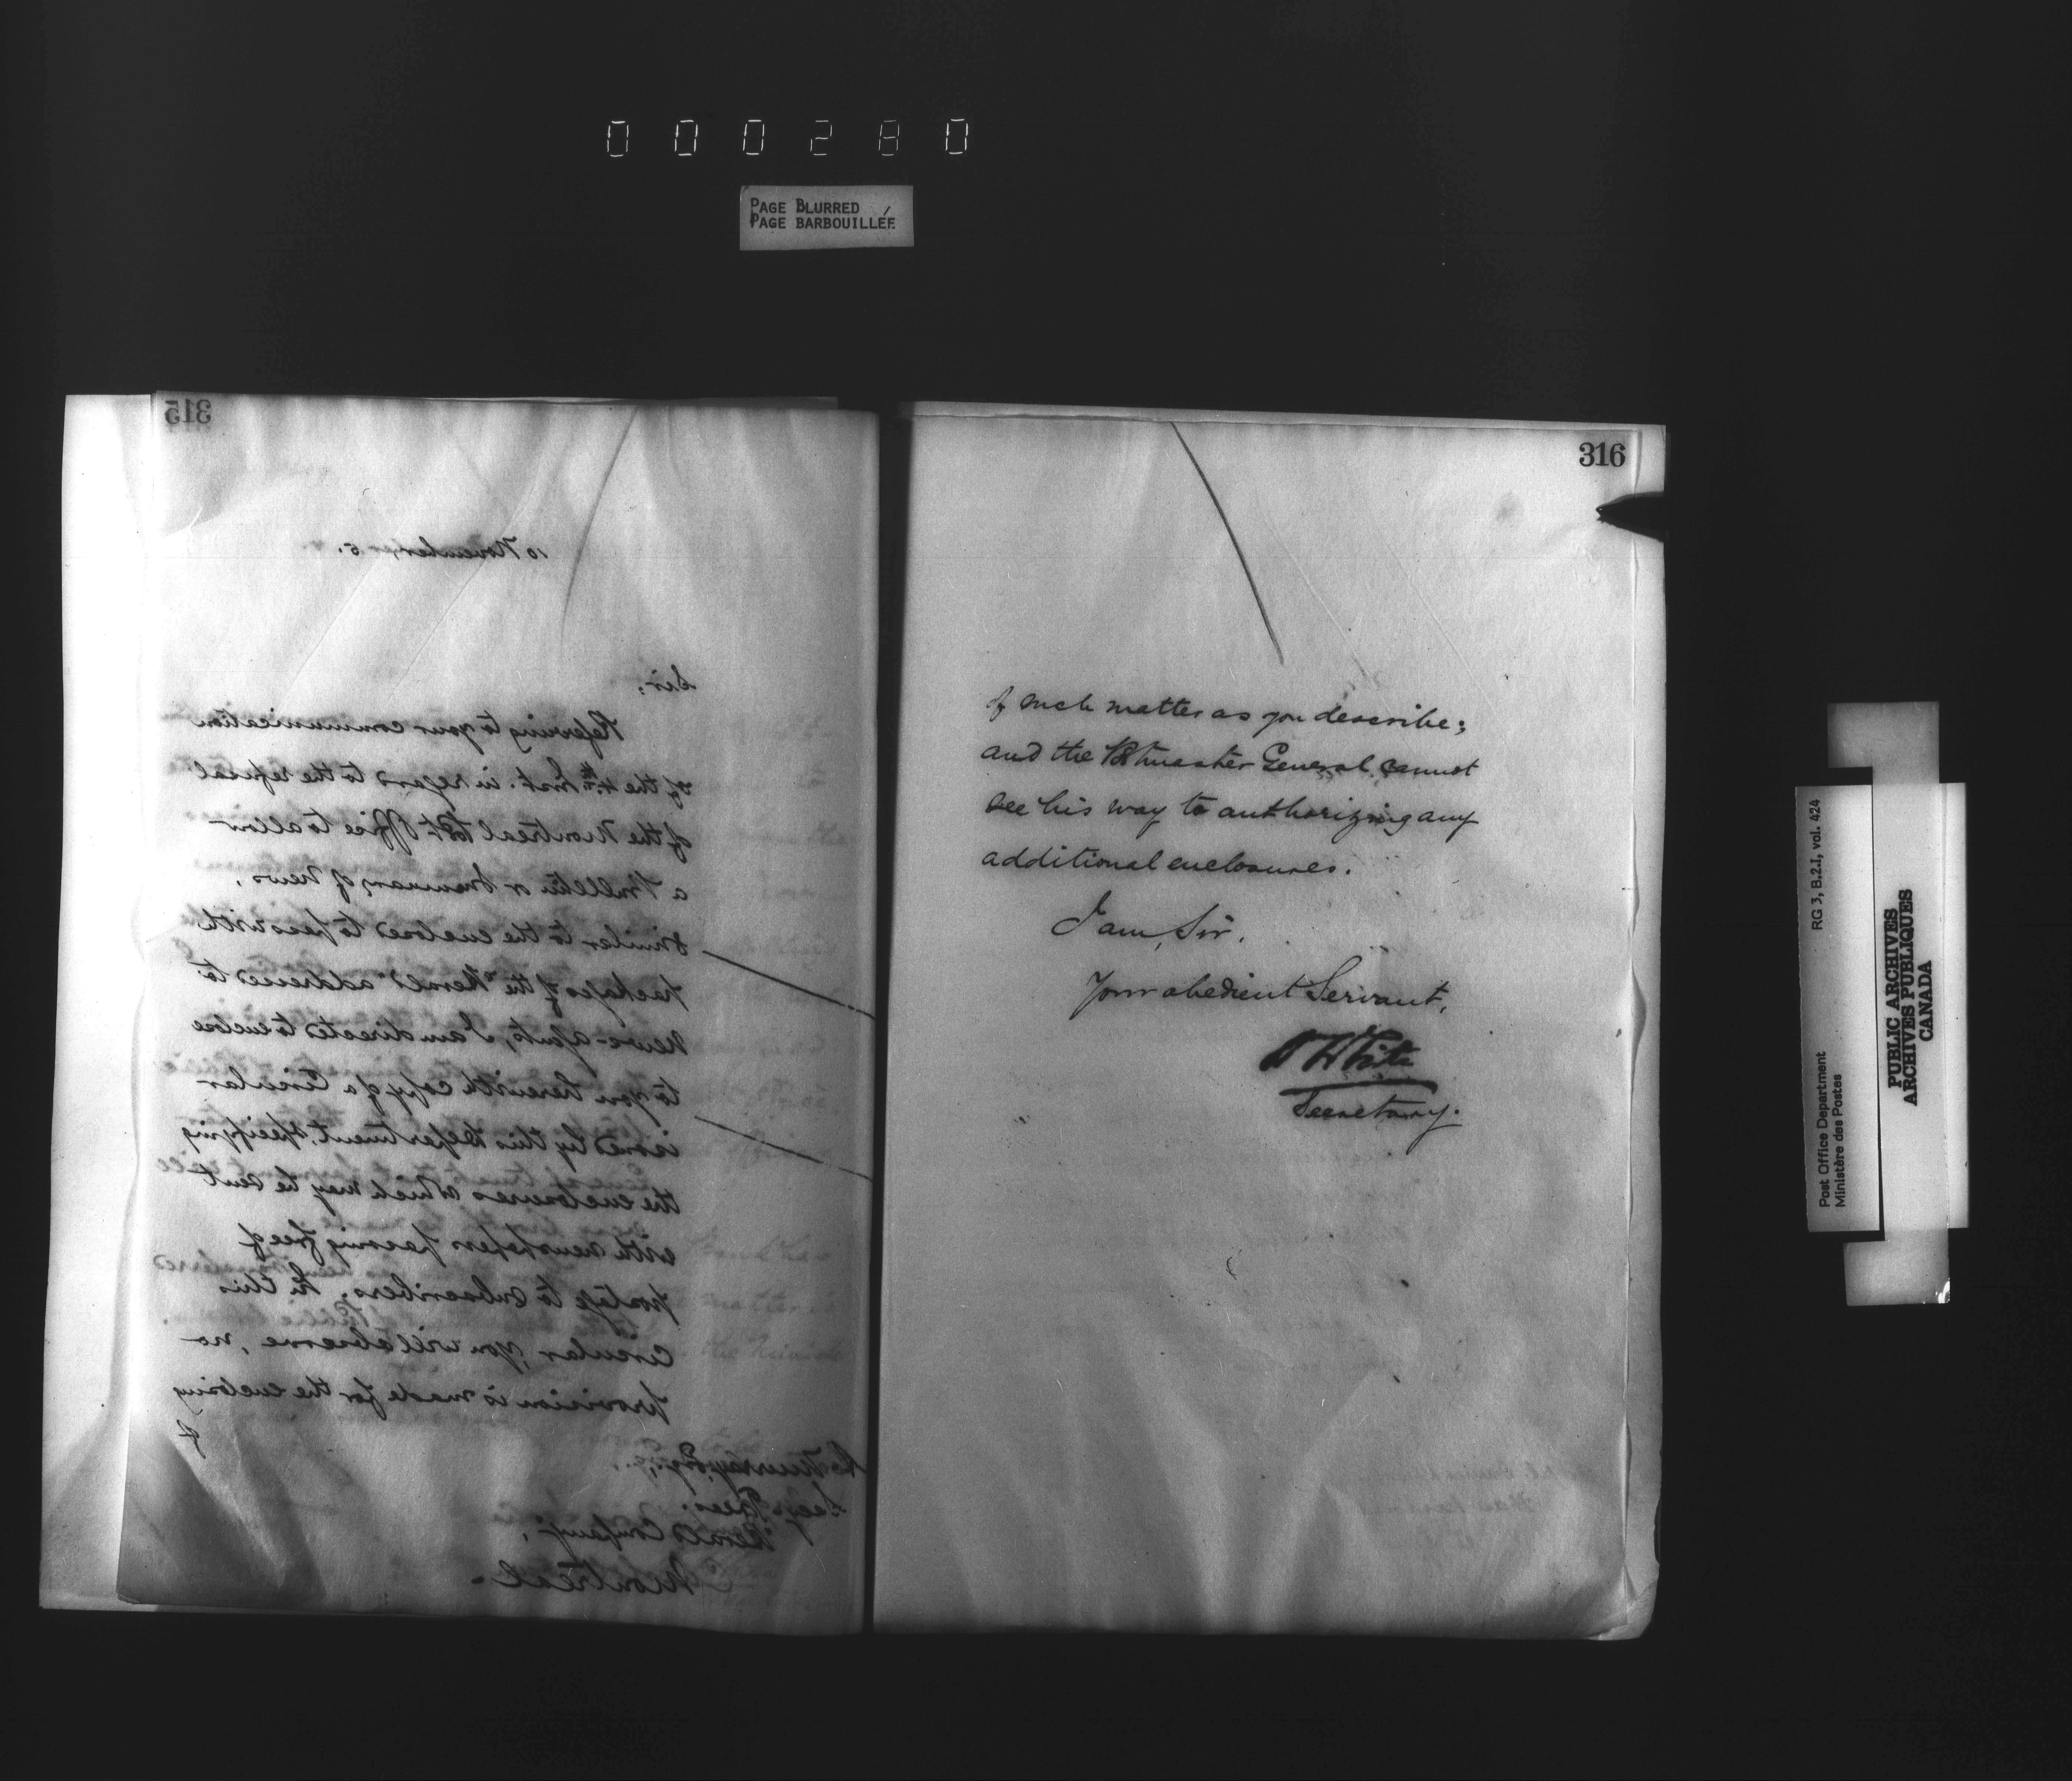 000280
PAGE BLURRED
PAGE BARBOUILLÉE
315
10 November 5.
Sir,
Referring to your communication
of the 4th Inst. in regard to the refusal
of the Montreal Post Office to allow
a Bulletin or Summary of News,
similar to the enclosed to pass with
packages of the "Herald" addressed to
News-agents, I am directed to enclose
to you herewith copy of a Circular
issued by this Department, specifying
the enclosures which may be sent
with newspapers passing free of
postage to subscribers. In this
Circular, you will observe, no
provision is made for the enclosing
of
Esq.,
Secy Treas:
Herald Company,
Montreal-
316
of such matter as you describe;
and the Postmaster General cannot
see his way to authorizing any
additional enclosures.
I am, Sir,
Your obedient Servant,
White
Secretary.
RG 3, B.2.1, vol. 424
Post Office Department
Ministère des Postes
PUBLIC ARCHIVES
ARCHIVES PUBLIQUES
CANADA